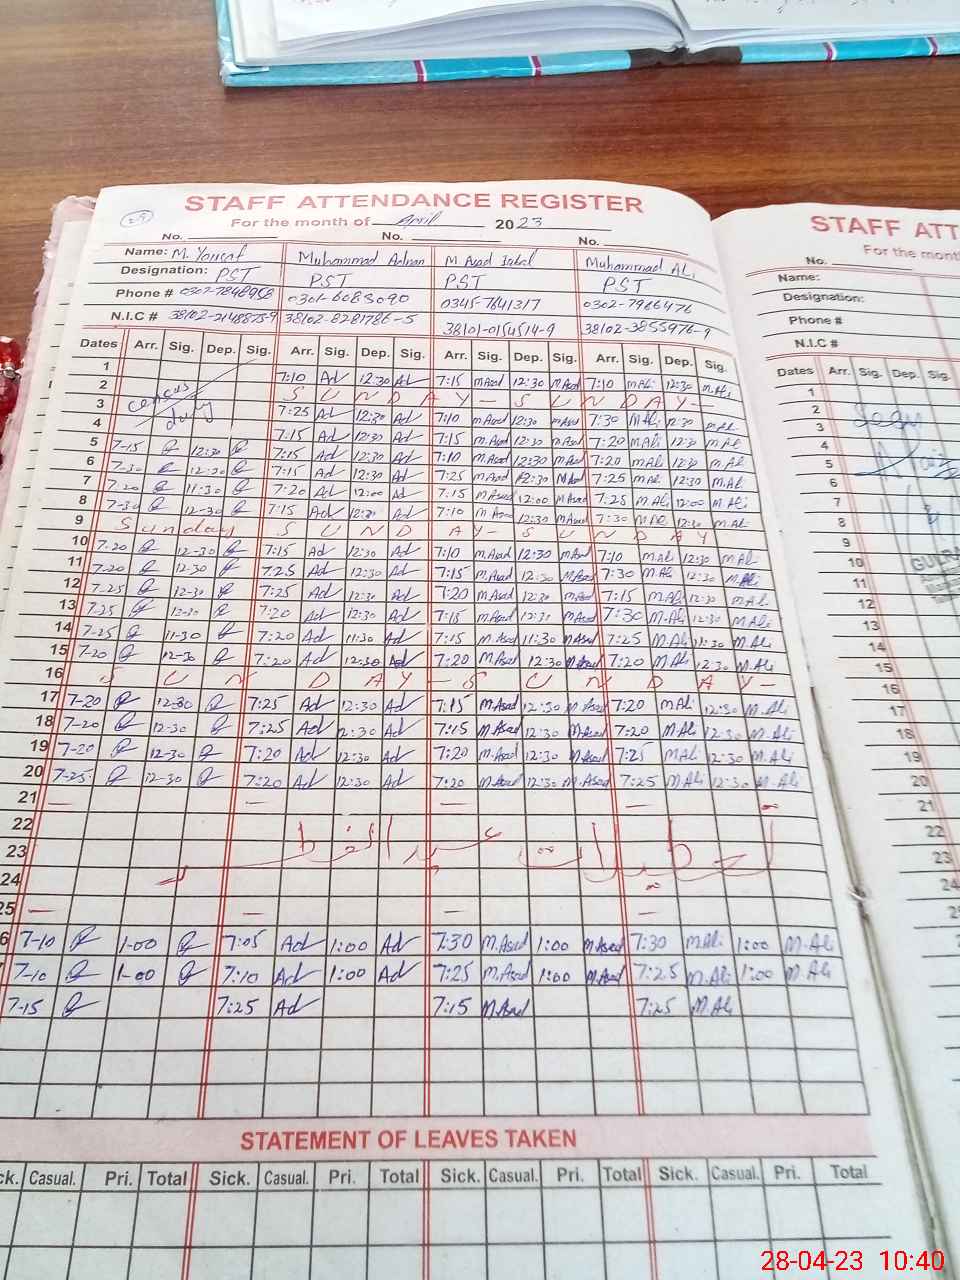 STAFF ATTENDANCE REGISTER
29 For the month of April 2023
No. No. No.
Name: M. Yousaf Muhammad Adnan M. Asad Iqbal Muhammad Ali
Designation: PST PST PST PST
Phone # 0302-7848958 0301-6083090 0345-7641317 0302-7966476
N.I.C # 38102-2148875-9 38102-8281786-5 38101-0154514-9 38102-3855976-9
Dates Arr. Sig. Dep. Sig. Arr. Sig. Dep. Sig. Arr. Sig. Dep. Sig. Arr. Sig. Dep. Sig.
1 7:10 Ad 12:30 Ad 7:15 M.Asad 12:30 M.Asad 7:10 M.Ali 12:30 M.Ali
2 census duty SUNDAY - SUNDAY -
3 7:25 Ad 12:30 Ad 7:10 M.Asad 12:30 M.Asad 7:30 M.Ali 12:30 M.Ali
4 7:15 Ad 12:30 Ad 7:15 M.Asad 12:30 M.Asad 7:20 M.Ali 12:30 M.Ali
5 7-15 12:30 7:15 Ad 12:30 Ad 7:10 M.Asad 12:30 M.Asad 7:20 M.Ali 12:30 M.Ali
6 7-30 12-30 7:15 Ad 12:30 Ad 7:25 M.Asad 12:30 M.Asad 7:25 M.Ali 12:30 M.Ali
7 7-20 11-30 7:20 Ad 12:00 Ad 7:15 M.Asad 12:00 M.Asad 7:25 M.Ali 12:00 M.Ali
8 7-30 12-30 7:15 Ad 12:30 Ad 7:10 M.Asad 12:30 M.Asad 7:30 M.Ali 12:30 M.Ali
9 Sunday SUNDAY - SUNDAY
10 7-20 12-30 7:15 Ad 12:30 Ad 7:10 M.Asad 12:30 M.Asad 7:10 M.Ali 12:30 M.Ali
11 7-20 12-30 7:25 Ad 12:30 Ad 7:15 M.Asad 12:30 M.Asad 7:30 M.Ali 12:30 M.Ali
12 7-25 12-30 7:25 Ad 12:30 Ad 7:20 M.Asad 12:30 M.Asad 7:15 M.Ali 12:30 M.Ali
13 7-25 12-30 7:20 Ad 12:30 Ad 7:15 M.Asad 12:30 M.Asad 7:30 M.Ali 12:30 M.Ali
14 7-25 11-30 7:20 Ad 11:30 Ad 7:15 M.Asad 11:30 M.Asad 7:25 M.Ali 11:30 M.Ali
15 7-20 12-30 7:20 Ad 12:30 Ad 7:20 M.Asad 12:30 M.Asad 7:20 M.Ali 12:30 M.Ali
16 SUNDAY - SUNDAY -
17 7-20 12-30 7:25 Ad 12:30 Ad 7:15 M.Asad 12:30 M.Asad 7:20 M.Ali 12:30 M.Ali
18 7-20 12-30 7:25 Ad 12:30 Ad 7:15 M.Asad 12:30 M.Asad 7:20 M.Ali 12:30 M.Ali
19 7-20 12-30 7:20 Ad 12:30 Ad 7:20 M.Asad 12:30 M.Asad 7:25 M.Ali 12:30 M.Ali
20 7-25 12-30 7:20 Ad 12:30 Ad 7:20 M.Asad 12:30 M.Asad 7:25 M.Ali 12:30 M.Ali
21 — — — —
22
23 تعطیلات عید الفطر
24
25 — — — —
6 7-10 1-00 7:05 Ad 1:00 Ad 7:30 M.Asad 1:00 M.Asad 7:30 M.Ali 1:00 M.Ali
7-10 1-00 7:10 Ad 1:00 Ad 7:25 M.Asad 1:00 M.Asad 7:25 M.Ali 1:00 M.Ali
7-15 7:25 Ad 7:15 M.Asad 7:25 M.Ali
STATEMENT OF LEAVES TAKEN
ck. Casual. Pri. Total Sick. Casual. Pri. Total Sick. Casual. Pri. Total Sick. Casual. Pri. Total
STAFF ATT
For the month
No.
Name:
Designation:
Phone #
N.I.C #
Dates Arr. Sig. Dep. Sig.
1
2
3
4
5
6
7
8
9
10
11
12
13
14
15
16
17
18
19
20
21
22
23
24
28-04-23 10:40